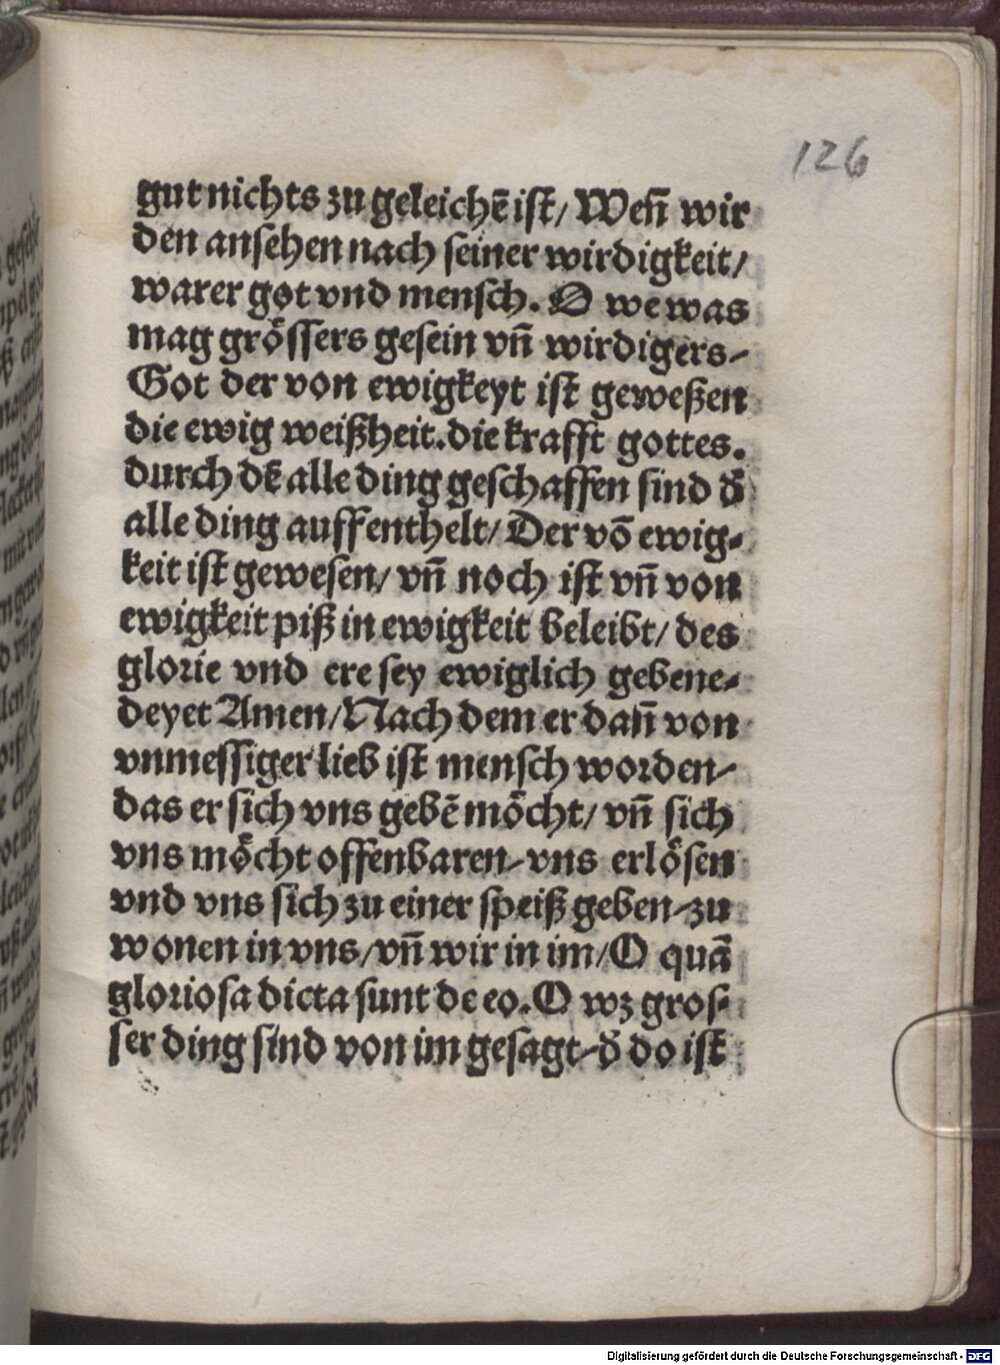 126
gut nichts zu geleichē ist/ Weñ wir
den ansehen nach seiner wirdigkeit/
warer got vnd mensch. O we was
mag grössers gesein vñ wirdigers-
Got der von ewigkeyt ist geweßen
die ewig weißheit. die krafft gottes.
durch dē alle ding geschaffen sind d̕
alle ding auffenthelt/ Der vō ewig-
keit ist gewesen/ vñ noch ist vñ von
ewigkeit piß in ewigkeit beleibt/ des
glorie vnd ere sey ewiglich gebene-
deyet Amen/ Nach dem er dañ von
vnmessiger lieb ist mensch worden-
das er sich vns gebē möcht/ vñ sich
vns möcht offenbaren-vns erlösen
vnd vns sich zu einer speiß geben-zu
wonen in vns/ vñ wir in im/ O quā
gloriosa dicta sunt de eo. O wz gros-
ser ding sind von im gesagt-d̕ do ist
Digitalisierung gefördert durch die Deutsche Forschungsgemeinschaft - DFG